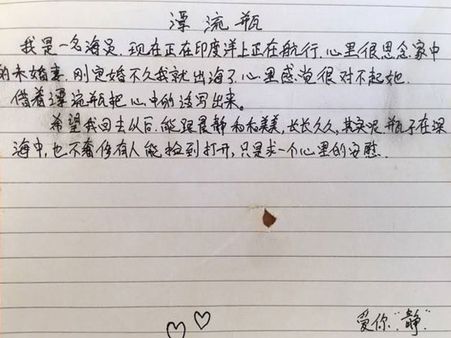 漂流瓶
我是一名海员.现在正在印度洋上正在航行.心里很思念家中
的未婚妻.刚定婚不久我就出海了心里感觉很对不起她.
借着漂流瓶把心中的话写出来。
希望我回去以后,能跟晨静和和美美,长长久久,其实呢瓶子在深
海中,也不奢侈有人能捡到打开,只是求一个心里的安慰.
爱你"静"